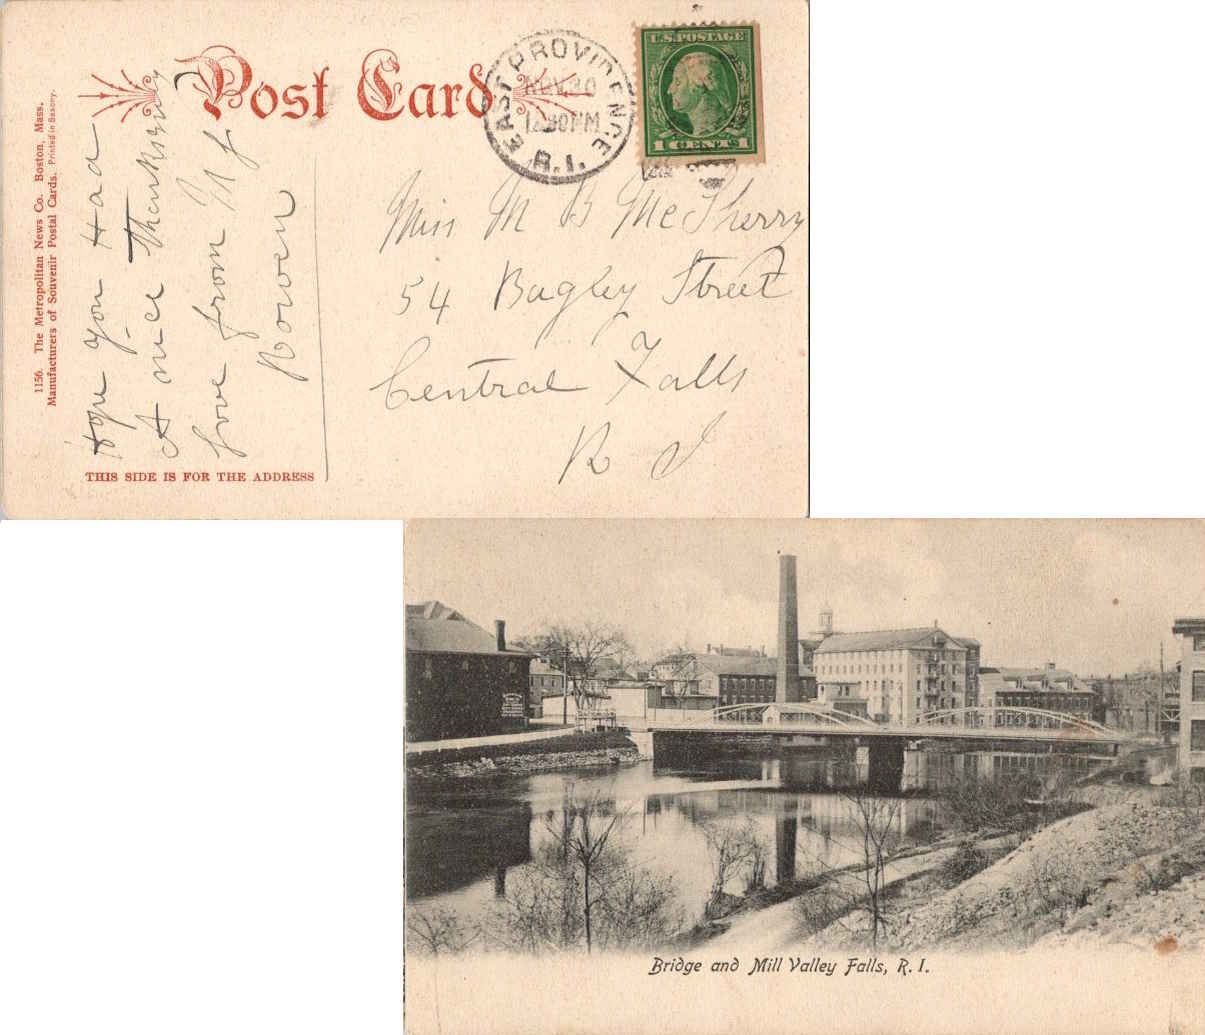 Post Card
EAST PROVIDENCE
NOV 30
12 30 PM
R.I.
U.S. POSTAGE
1 CENTS 1
1156. The Metropolitan News Co. Boston, Mass.
Manufacturers of Souvenir Postal Cards. Printed in Saxony.
Hope you Had
A nice Thanksgiving
Love from M J
Rowen
Miss M B McSherry
54 Bagley Street
Central Falls
R I
THIS SIDE IS FOR THE ADDRESS
Bridge and Mill Valley Falls, R. I.